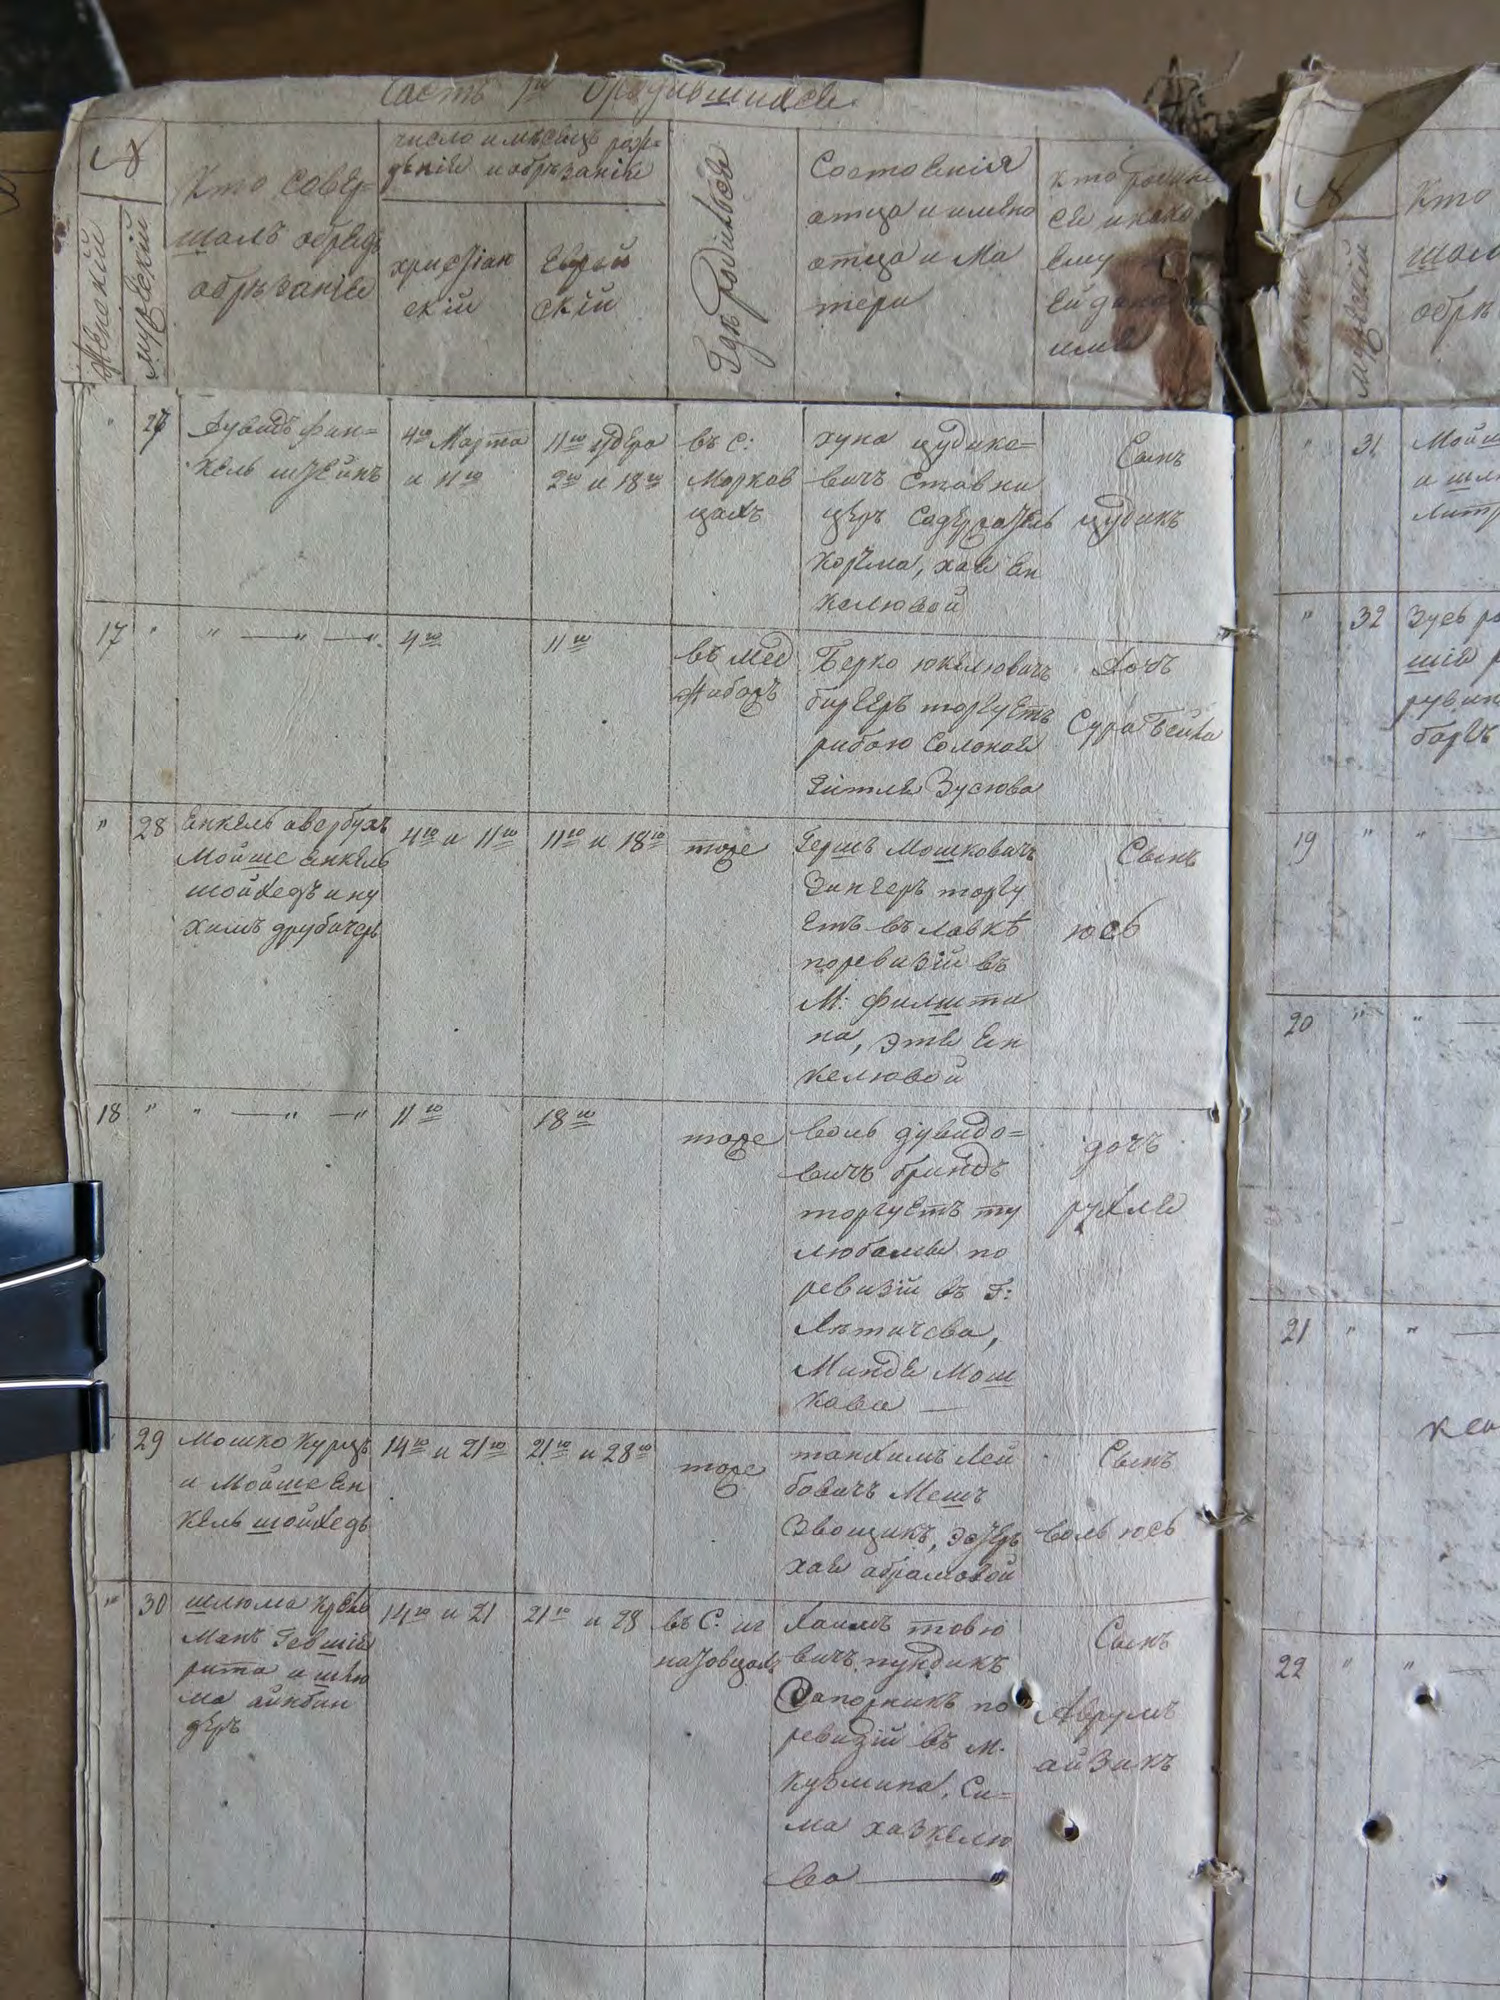 Часть 1ая Ородившихся
№
Женский
мужеский
Кто совер=
шалъ обрядъ
обрезания
число и месяцъ рож=
дения и обрезания
христиан
ский
Еврей
ский
Где родился
Состояния
отца и имена
отца и Ма
тери
кто родил
ся и како
Ему
Ей дано
имя
" 27
Дувидъ Фин=
кель штейнъ
4го Марта
и 11го
11го Адера
2го и 18го
въ с.
Марков
цахъ
хуна цудике=
вичъ ставни
церъ содержатель
корчма, хая Ен
келювой
Сынъ
цудикъ
17 " " — " — "
4го
11го
въ Мед
жибожъ
Берко юкелювичъ
биргеръ торгуетъ
рибою Солоной
Ейтля Зусюва
Дочъ
Сура Бейла
" 28
Енкель авербухъ
Мойше Енкель
шойхедъ и ну
химъ друбичеръ
4го и 11го
11го и 18го
тоже
Гершъ Мошковичъ
Зингеръ торгу
Етъ въ лавкѣ
поревизiи въ
М: Филшти
на, Этя Ен
келювой
Сынъ
юсь
18 " " — " — "
11го
18го
тоже
воль дувидо=
вичъ бриндъ
торгуетъ ту
любами по
ревизiи въ Г:
Лѣтичева,
Миндя Мош
кова —
дочъ
рухля
" 29
Мошко Курцъ
и Мойше Ен
кель шойхедъ
14го и 21го
21го и 28го
тоже
танхимъ Лей
бовичъ Мешъ
Звощикъ, Эстеръ
хая абрамовой
Сынъ
воль юсь
" 30
шлюма Крей
манъ Гевший
рита и шлю
ма айнбин
деръ
14го и 21
21го и 28
въ С: иг
натовцахъ
Хаимъ товю
вичъ пундикъ
Сапожникъ по
ревизiи въ м.
Кузмина, Си=
ма хазкелю
ва — "
Сынъ
Аврумъ
айзикъ
№
мужеский
Кто
шал
обрѣ
" 31
Мойш
и шл
" 32
Зусь
рувин
19 " "
20 " " —
21 " " —
22 " "